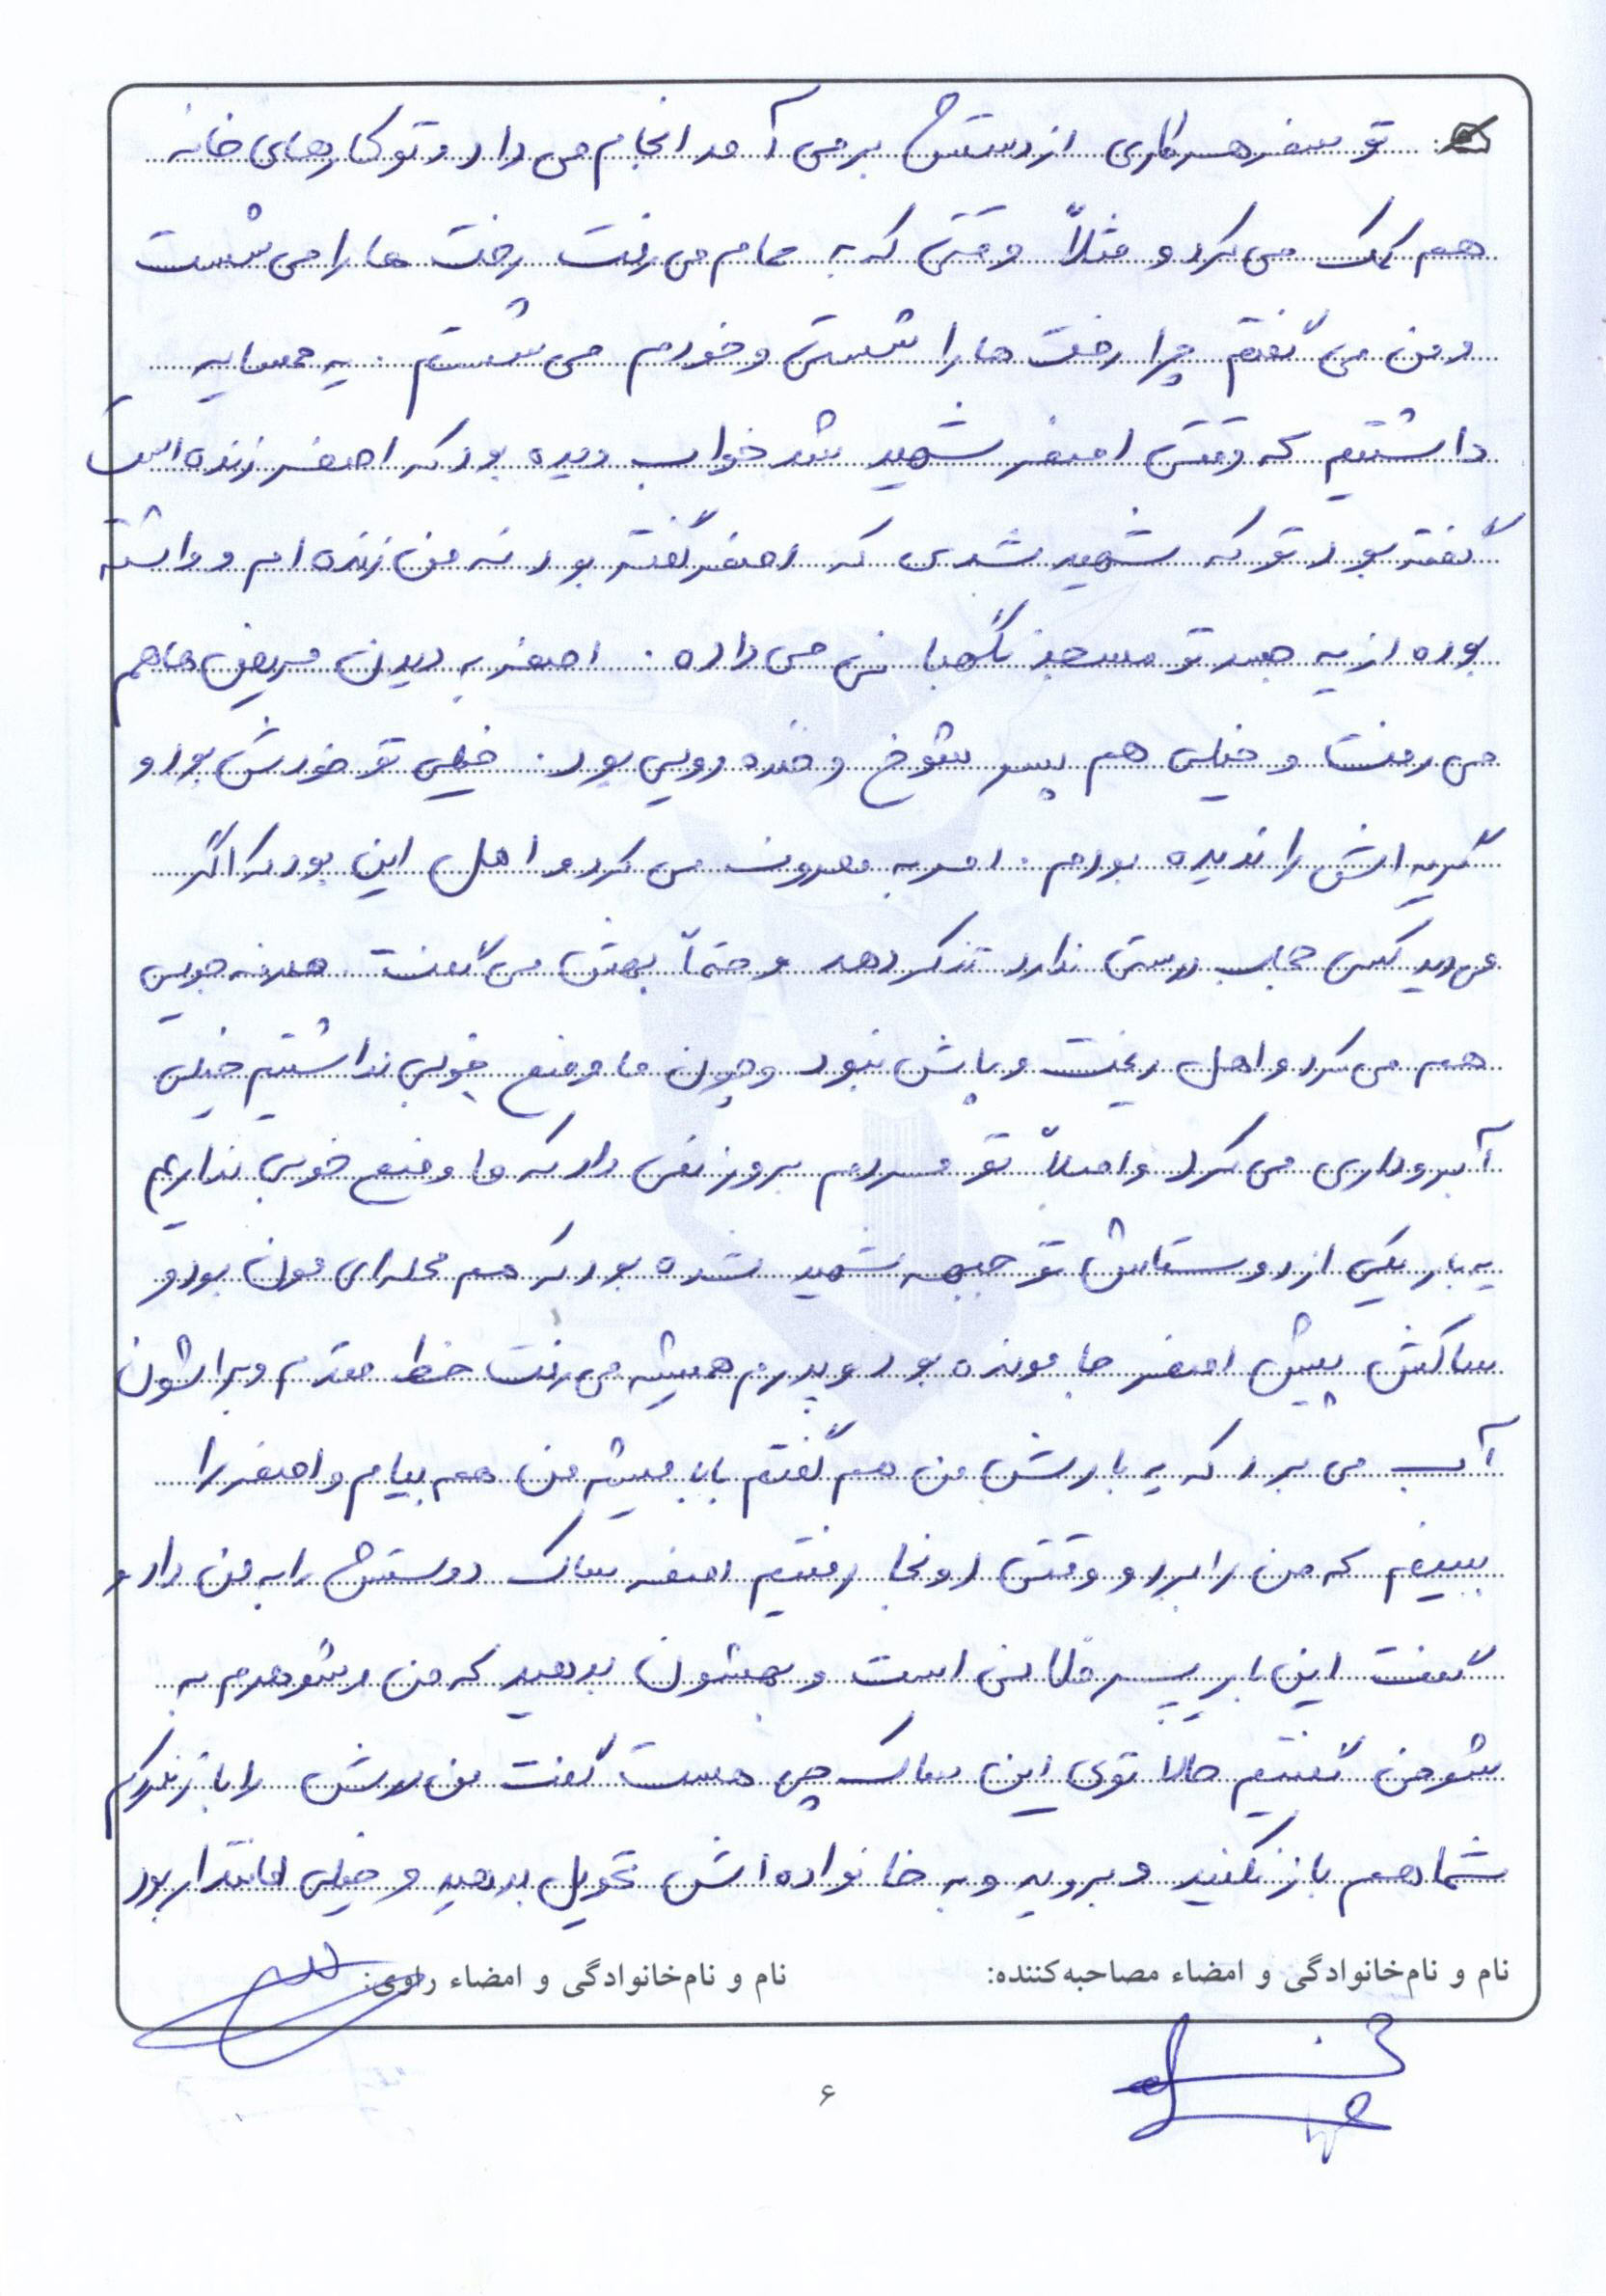 تو سفر هر کاری از دستش بر می آمد انجام می داد و تو کارهای خانه
هم کمک می کرد و مثلاً وقتی که به حمام می رفت رخت ها را می شست
و من می گفتم چرا رخت ها را شستی و خودم می شستم . یه همسایه
داشتیم که وقتی اصغر شهید شد خواب دیده بود که اصغر زنده است
گفته بود تو که شهید شدی که اصغر گفته بود نه من زنده ام و داشته
بوده از یه جسد تو مسجد نگهبانی می داده . اصغر به دیدن مریض ها هم
می رفت و خیلی هم پسر شوخ و خنده رویی بود . خیلی تو خودش بود و
گریه اش را ندیده بودم . امر به معروف می کرد و اهل این بود که اگر
می دید کسی حجاب درستی ندارد تذکر دهد و حتماً بهش می گفت صرفه جویی
هم می کرد و اهل ریخت و پاش نبود و چون ما وضع خوبی نداشتیم خیلی
آبروداری می کرد و اصلاً تو مردم بروز نمی داد که ما وضع خوبی نداریم
یه بار یکی از دوستاش تو جبهه شهید شده بود که هم محله ای مون بود و
ساکش پیش اصغر جا مونده بود و پدرم همیشه می رفت خط مقدم و براشون
آب می برد که یه بارش من هم گفتم بابا میشه من هم بیام و اصغر را
ببینم که من را برد و وقتی اونجا رفتیم اصغر ساک دوستش را به من داد و
گفت این برای پسر فلانی است و بهشون بدهید که من و شوهرم به
شوخی گفتیم حالا توی این ساک چی هست گفت من درش را باز نکردم
شما هم باز نکنید و برید و به خانواده اش تحویل بدهید و خیلی امانتدار بود
نام و نام‌خانوادگی و امضاء مصاحبه‌کننده:
نام و نام‌خانوادگی و امضاء راوی:
۶